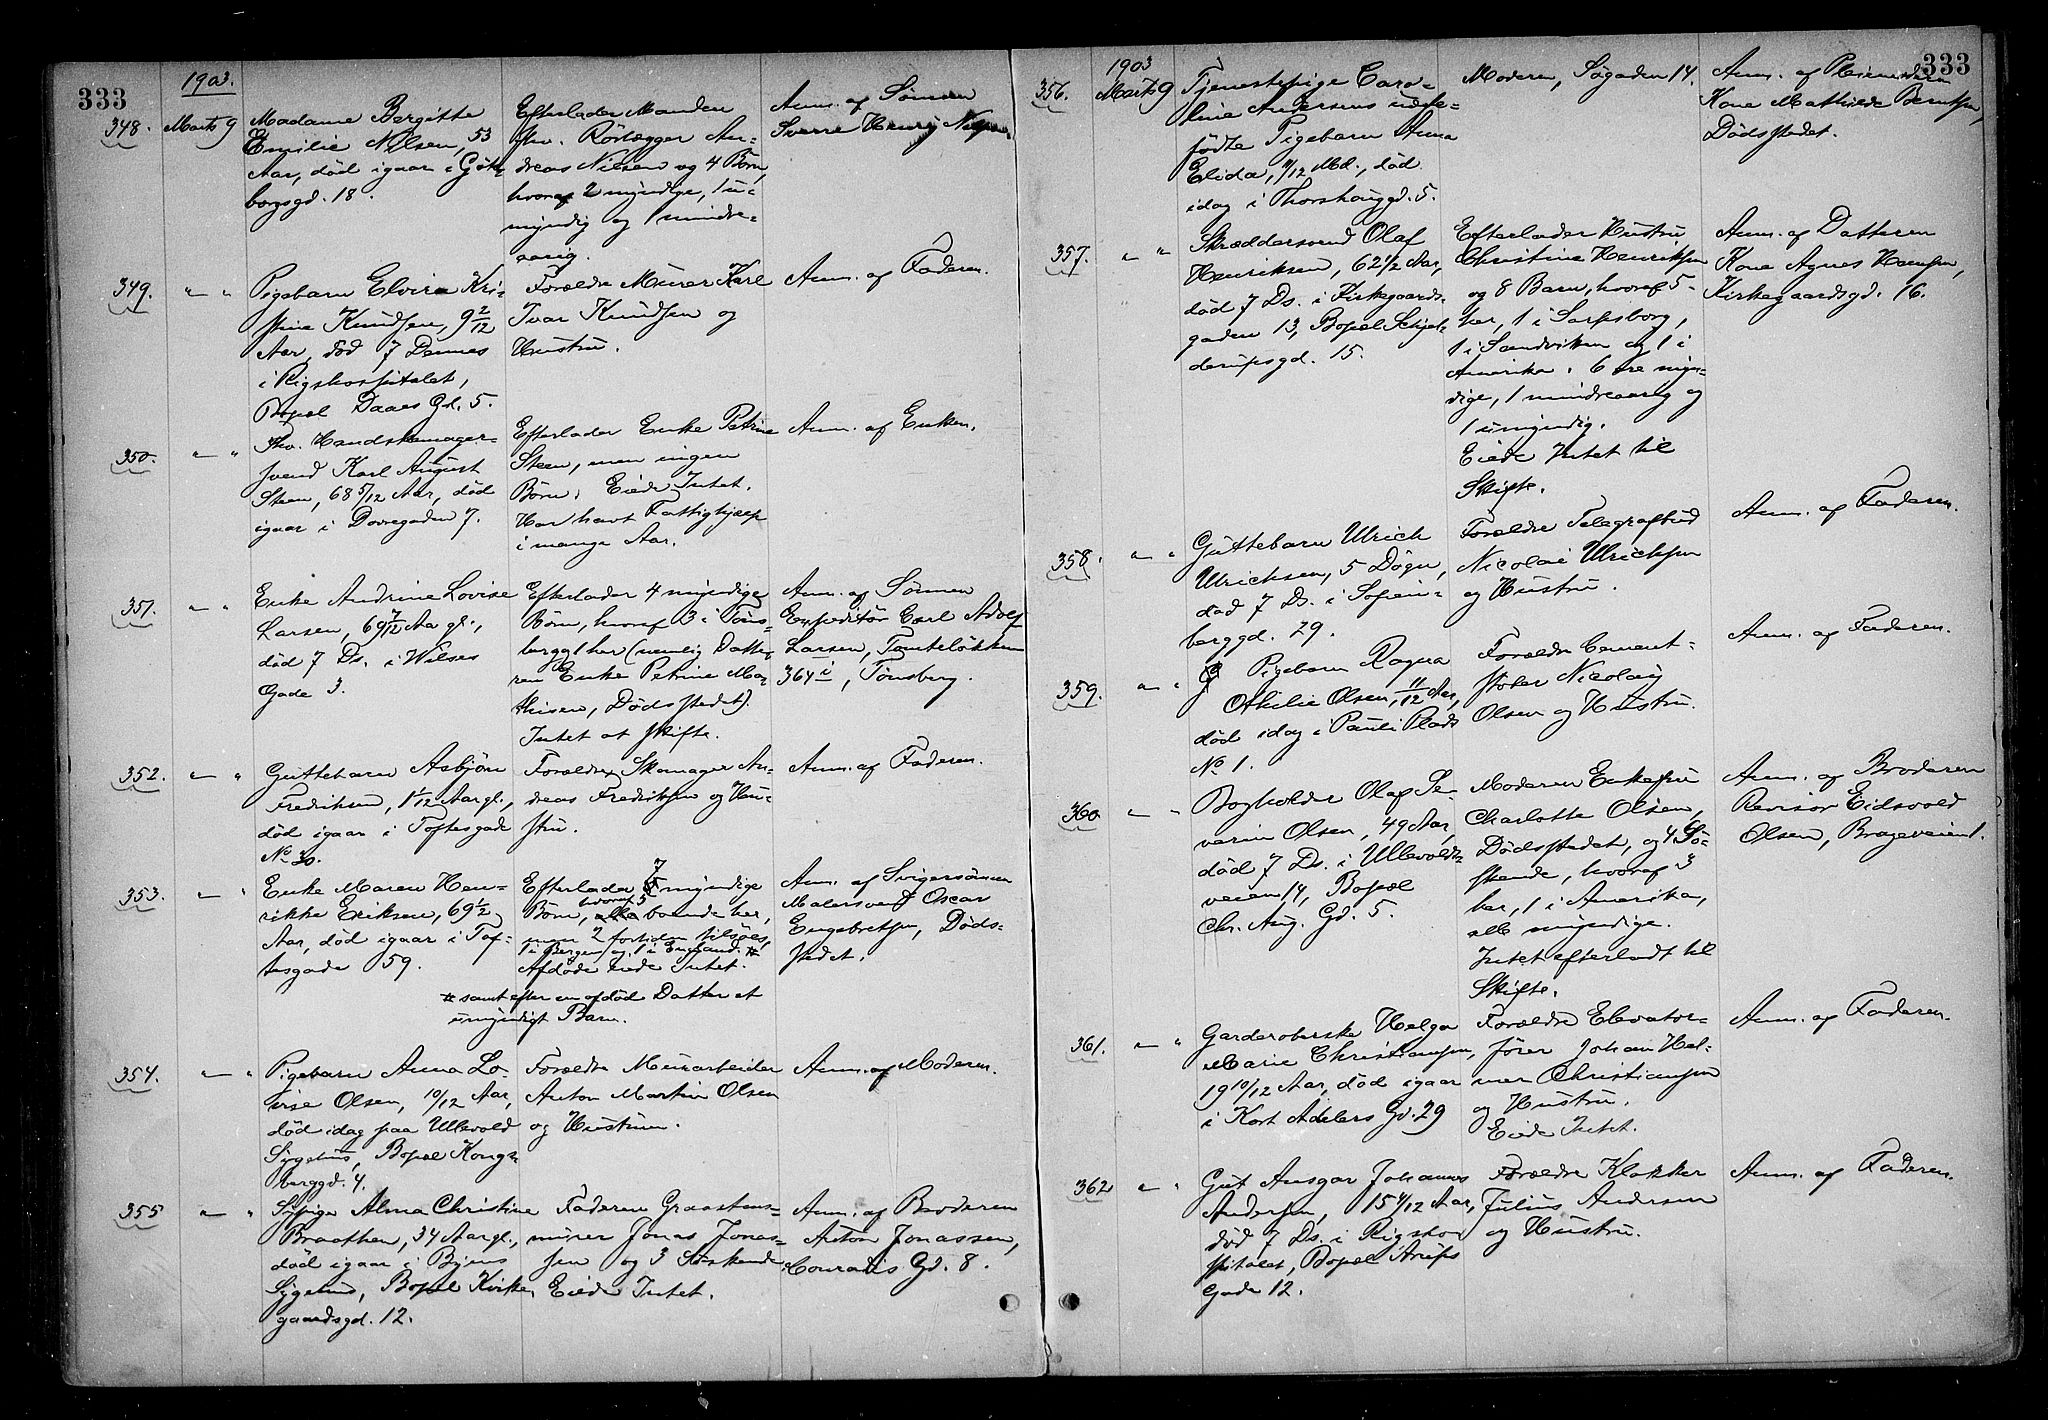 333
1903.
348.
Marts 9
Madame Bergitte
Emilie Nilsen, 53
Aar, død igaar i Göte-
borgsgd. 18.
Efterlader Manden
fhv. Rörlægger An-
dreas Nilsen og 4 Börn,
hvoraf 2 myndige, 1 u-
myndig og 1 mindre-
aarig.
Anm. af Sönnen
Sverre Henry Nilsen
349.
" "
Pigebarn Elvira Kri-
stine Knudsen, 9 2/12
Aar, död 7 Dennes
i Rigshospitalet,
Bopæl Daaes Gd. 5.
Forældre Murer Karl
Ivar Knudsen og
Hustru.
Anm. af Faderen.
350.
" "
Fhv. Handskemager-
svend Karl August
Steen, 68 5/12 Aar, död
igaar i Dovregaden 7.
Efterlader Enke Petrine
Steen, men ingen
Börn. Eiede Intet.
Har havt Fattighjælp
i mange Aar.
Anm. af Enken.
351.
" "
Enke Andrine Lovise
Larsen, 69 7/12 Aar gl.,
död 7 Ds. i Wilses
Gade 3.
Efterlader 4 myndige
Börn, hvoraf 3 i Töns-
berg, 1 her (nemlig Datte-
ren Enke Petrine Ma-
thisen, Dödsstedet).
Intet at skifte.
Anm. af Sönnen
Expeditör Carl Adolf
Larsen, Tomteløkken
364 i, Tönsberg.
352.
" "
Guttebarn Asbjörn
Fredriksen, 1 1/12 Aar gl.,
död igaar i Toftesgade
No 20.
Forældre Skomager An-
dreas Fredriksen og Hu-
stru.
Anm. af Faderen.
353.
" "
Enke Maren Hen-
rikke Eriksen, 69 1/2
Aar, död igaar i Tof-
tesgade 59.
Efterlader 7 myndige
Börn, hvoraf 5 boende her,
men 2 fortiden tilsöes,
1 i Bergen og 1 i England. #
Afdöde eiede Intet.
# samt efter en afdöd Datter et
umyndigt Barn.
Anm. af Svigersönnen
Malersvend Oscar
Engebretsen, Döds-
stedet.
354.
" "
Pigebarn Anna Lo-
vise Olsen, 10/12 Aar,
död idag paa Ullevold
Sygehus, Bopæl Kongs-
berggd. 4.
Forældre Murarbeider
Anton Martin Olsen
og Hustru.
Anm. af Moderen.
355
" "
Sypige Alma Christine
Braathen, 34 Aar gl.,
död igaar i Byens
Sygehus, Bopæl Kirke-
gaardsgd. 12.
Faderen Graastens-
murer Jonas Jonas-
sen og 3 Söskende.
Eiede Intet.
Anm. af Broderen
Anton Jonassen,
Conradis Gd. 8.
333
1903
356.
Marts 9
Tjenestepige Caro-
line Andersens udøb-
fødte Pigebarn Anna
Elida, 11/12 Md., död
idag i Thorshauggd. 5.
Moderen, Søgaden 14.
Anm. af Pleiemoderen
Kone Mathilde Berntsen,
Dödsstedet.
357.
" "
Skræddersvend Olaf
Henriksen, 62 1/2 Aar,
död 7 Ds. i Kirkegaards-
gaden 13, Bopæl Schjel-
derupsgd. 15.
Efterlader Hustru
Christine Henriksen
og 8 Barn, hvoraf 5
her, 1 i Sarpsborg,
1 i Sandviken og 1 i
Amerika. 6 ere myn-
dige, 1 mindreaarig og
1 umyndig.
Eiede Intet til
Skifte.
Anm. af Datteren
Kone Agnes Hansen,
Kirkegaardsgd. 16.
358.
" "
Guttebarn Ulrich
Ulrichsen, 5 Døgn,
död 7 Ds. i Sofien-
berggd. 29.
Forældre Telegrafbud
Nicolai Ulrichsen
og Hustru.
Anm. af Faderen.
359.
" "
Pigebarn Ragna
Othilie Olsen, 11/12 Aar,
död idag i Pauli Plads
No 1.
Forældre Cement-
stöber Nicolay
Olsen og Hustru.
Anm. af Faderen.
360
" "
Bogholder Olaf Se-
verin Olsen, 49 Aar,
död 7 Ds. i Ullevolds-
veien 14, Bopæl
Chr. Aug. Gd. 5.
Moderen Enkefru
Charlotte Olsen,
Dödsstedet, og 4 Sö-
skende, hvoraf 3
her, 1 i Amerika,
alle myndige.
Intet efterladt til
Skifte.
Anm. af Broderen
Revisor Eidsvold
Olsen, Brageveien 1.
361.
" "
Garderoberske Helga
Marie Christiansen,
19 10/12 Aar, död igaar
i Kort Adelers Gd. 29
Forældre Elevator-
förer Johan Hel-
mer Christiansen
og Hustru.
Eiede Intet.
Anm. af Faderen.
362
" "
Gut Ansgar Johannes
Andersen, 15 4/12 Aar,
död 7 Ds. i Rigsho-
spitalet, Bopæl Arups
Gade 12.
Forældre Klokker
Julius Andersen
og Hustru.
Anm. af Faderen.